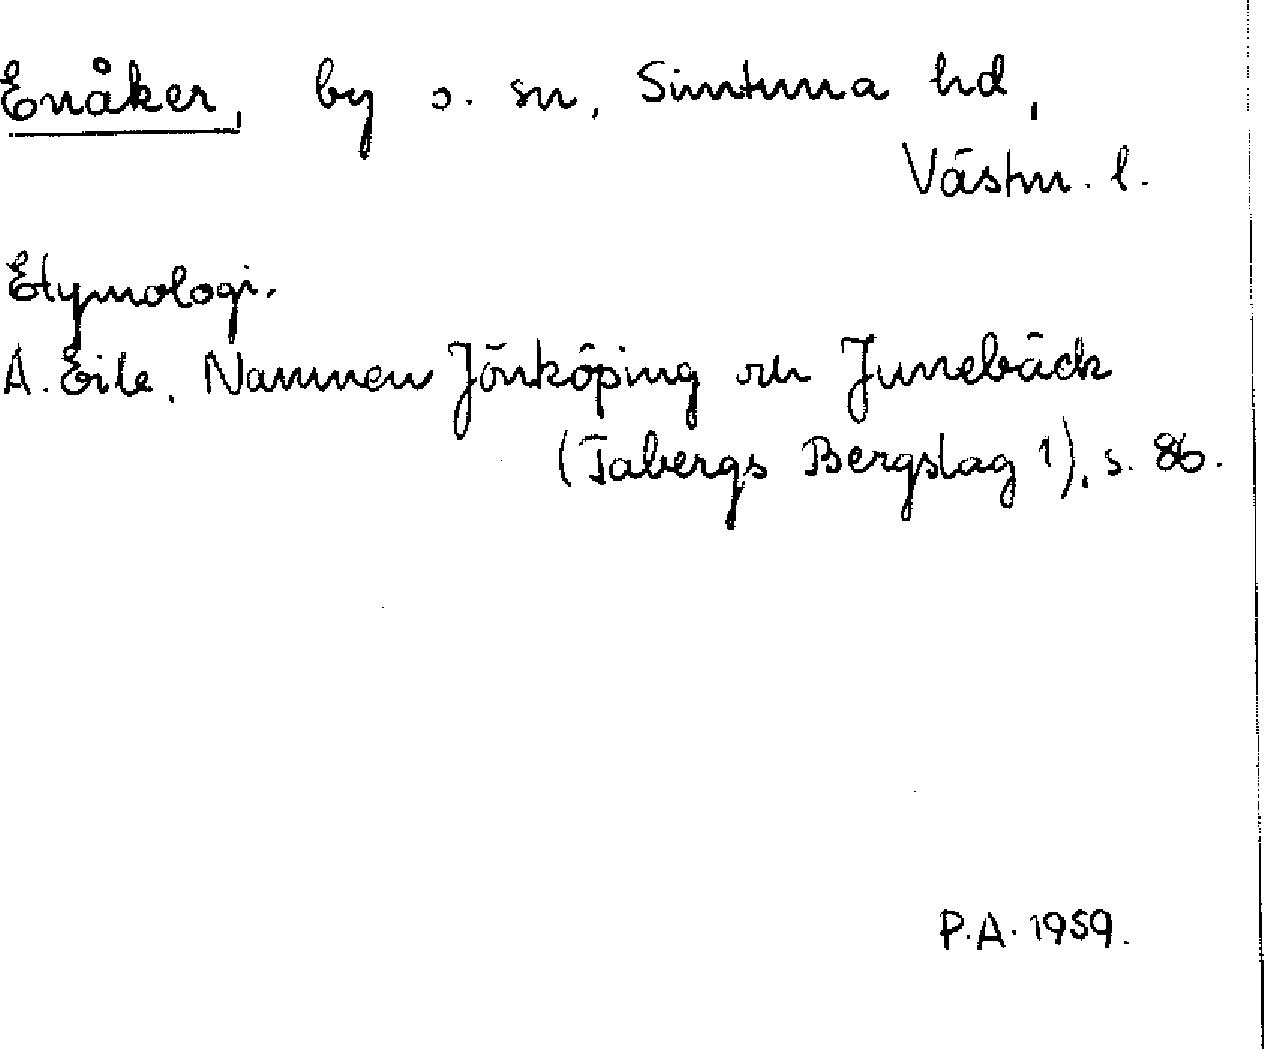 Enåker, by o. sn, Simtuna hd,
Västm. l.
Etymologi.
A. Eile, Namnen Jönköping och Junebäck
(Tabergs Bergslag 1), s. 86.
P.A. 1959.